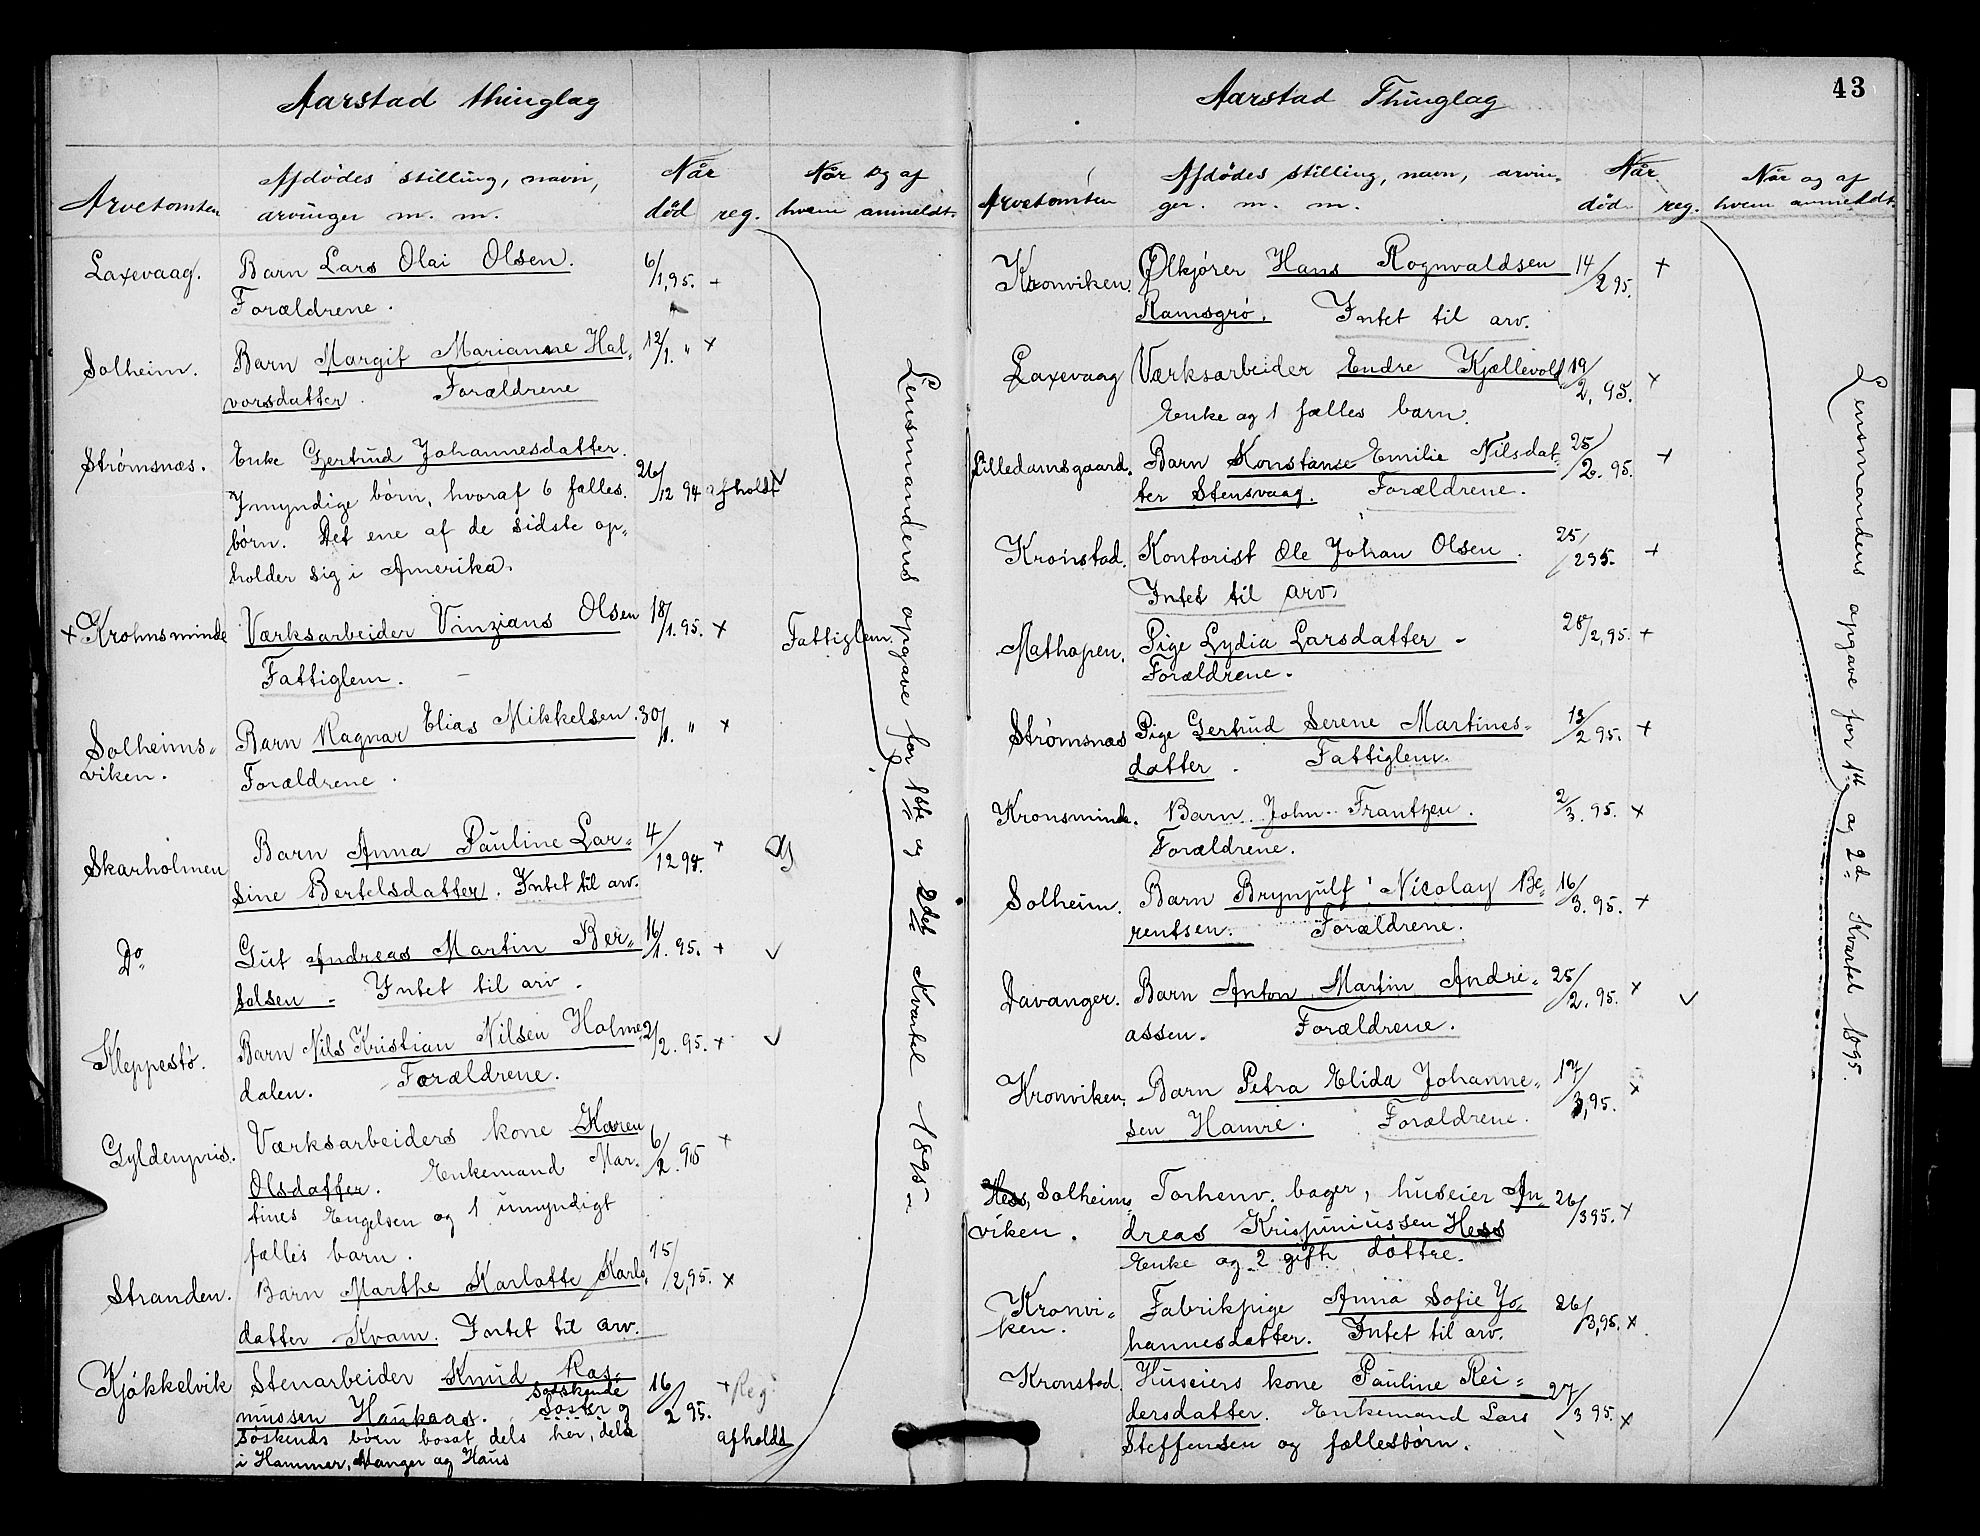 Aarstad thinglag
Arvetomten
Afdödes stilling, navn,
arvinger m. m.
Når
død reg.
Når og af
hvem anmeldt.
Laxevaag.
Barn Lars Olai Olsen.
6/1, 95. +
Forældrene.
Solheim.
Barn Margit Marianne Hal-
12/1. " +
vorsdatter. Forældrene
Strømsnæs.
Enke Gertrud Johannesdatter.
26/12 94 afholdt
7 myndige børn, hvoraf 6 fælles.
børn. Det ene af de sidste op-
holder sig i Amerika.
+ Krohnsminde
Værksarbeider Vinzians Olsen
18/1. 95. +
Fattiglem.
Fattiglem.
Solheims-
viken.
Barn Ragnar Elias Mikkelsen.
30/1. " +
Forældrene.
Skarholmen
Barn Anna Pauline Lar-
4/12 94. +
sine Bertelsdatter. Intet til arv.
Do
Gut Andreas Martin Ber-
16/1. 95. +
tolsen - Intet til arv.
Kleppestø.
Barn Nils Kristian Nilsen Holme-
2/2. 95. +
dalen. Forældrene.
Gyldenpris.
Værksarbeiders kone Karen
6/2. 95 +
Olsdatter. Enkemand Mar-
tines Engelsen og 1 umyndigt
fælles barn.
Stranden.
Barn Marthe Karlotte Karls-
15/2, 95. +
datter Kvam. Intet til arv.
Kjøkkelvik
Stenarbeider Knud Ras-
16/2 95. + Reg.
mussen Haukaas. Søskende
Søster og
afholdt
søskends børn bosat dels her, dels
i Hammer, Manger og Haus
Lensmandens opgave for 1ste og 2det Kvartel 1895.
43
Aarstad Thinglag
Arvetomten
Afdödes stilling, navn, arvin-
ger. m. m.
Når
død. reg.
Når og af
hvem anmeldt.
Kronviken.
Ølkjører Hans Rognvaldsen
14/2 95. +
Ramsgrø. Intet til arv.
Laxevaag
Værksarbeider Endre Kjellevold
19/2, 95. +
Enke og 1 fælles barn.
Lilledamsgaard.
Barn Konstanse Emilie Nilsdat-
25/2. 95. +
ter Stensvaag. Forældrene.
Kronstad.
Kontorist Ole Johan Olsen.
25/2 95. +
Intet til arv.
Mathopen.
Pige Lydia Larsdatter -
28/2, 95. +
Forældrene.
Strømsnæs
Pige Gertrud Serene Martines-
13/2 95. +
datter. Fattiglem.
Kronsminde.
Barn John Frantzen.
2/3. 95. +
Forældrene.
Solheim.
Barn Brynjulf Nicolay Be-
16/3. 95. +
rentsen. Forældrene.
Davanger.
Barn Anton Martin Andre-
25/2. 95. +
assen. Forældrene.
Kronviken.
Barn Petra Elida Johanne-
17/3, 95. +
sen Hamre. Forældrene.
Solheims-
viken.
Forhenv. bager, huseier An-
26/3 95. +
dreas Krispiniussen Hess
Enke og 2 gifte døttre.
Kronvi-
ken.
Fabrikpige Anna Sofie Jo-
26/3, 95. +
hannesdatter. Intet til arv.
Kronstad.
Huseiers kone Pauline Rei-
27/3 95. +
dersdatter. Enkemand Lars
Steffensen og fællesbørn.
Lensmandens opgave for 1ste og 2d Kvartel 1895.